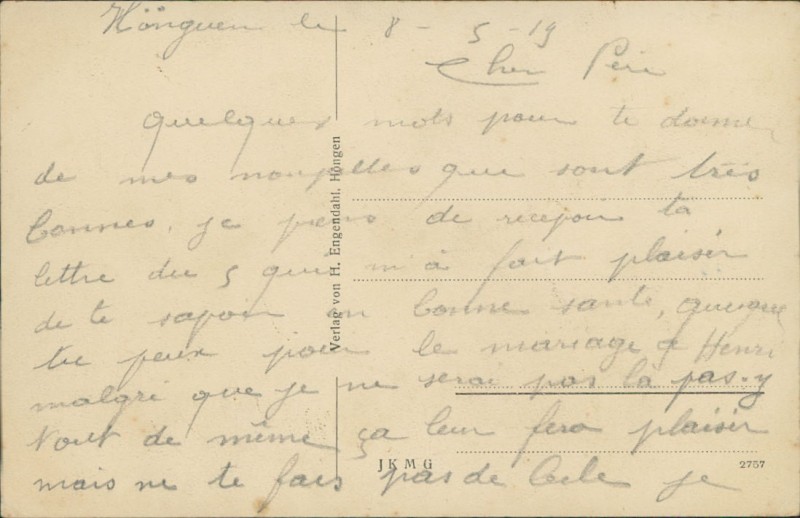 Hönguen le 8 - 5 - 19
Cher Père
quelques mots pour te donner
de mes nouvelles que sont très
bonnes, je viens de recevoir ta
lettre du 5 qui m'à fait plaisir
de te savoir en bonne santé, quesque
tu peux pour le mariage a Henri
malgré que je ne serai pas là pas-y
tout de même ça leur fera plaisir
mais ne te fais pas de bile je
Verlag von H. Engendahl, Höngen
JKMG
2757